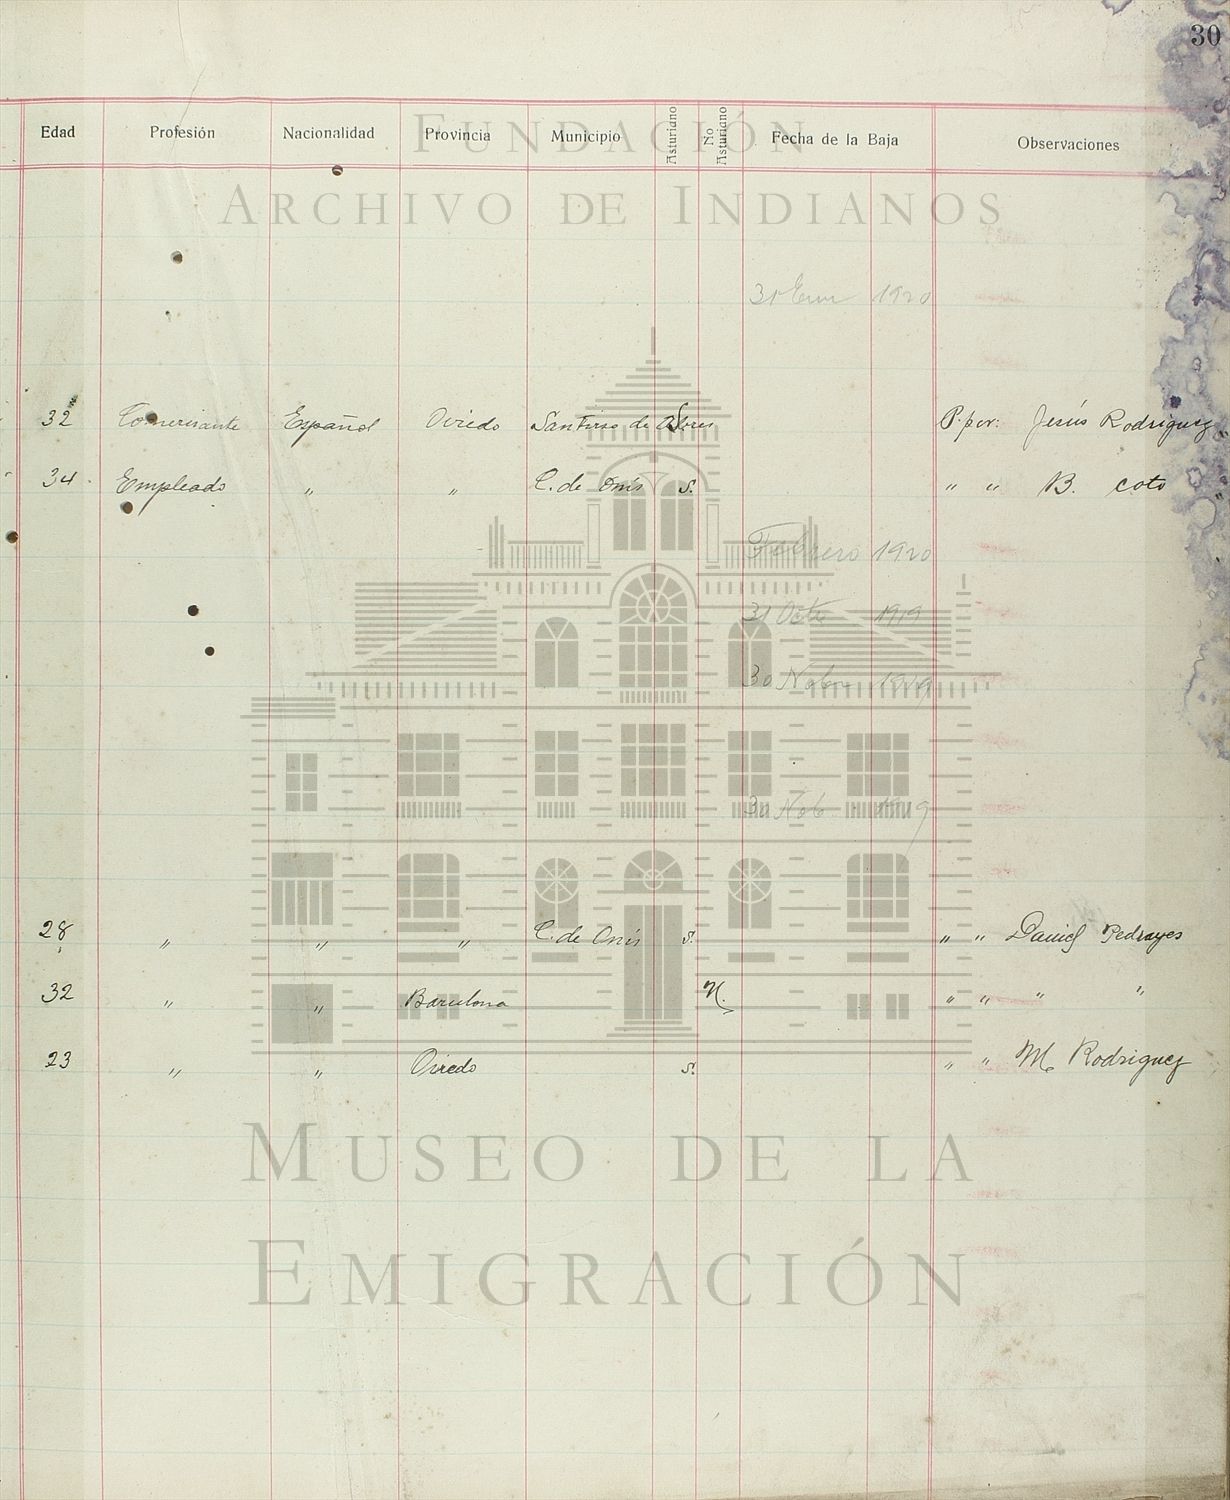 30
Edad Profesión Nacionalidad Provincia Municipio Asturiano No Asturiano Fecha de la Baja Observaciones
FUNDACIÓN
ARCHIVO DE INDIANOS
31 Enero 1920
32 Comerciante Español Oviedo Santirso de Abres S. P. por: Jesús Rodriguez
34 Empleado " " C. de Onís S. " " B. Coto
Febrero 1920
31 Octe 1919
30 Nobre 1919
30 Nob 1919
28 " " " C. de Onís S. " " Daniel Pedrayes
32 " " Barcelona N. " " " "
23 " " Oviedo S. " " M. Rodriguez
MUSEO DE LA
EMIGRACIÓN